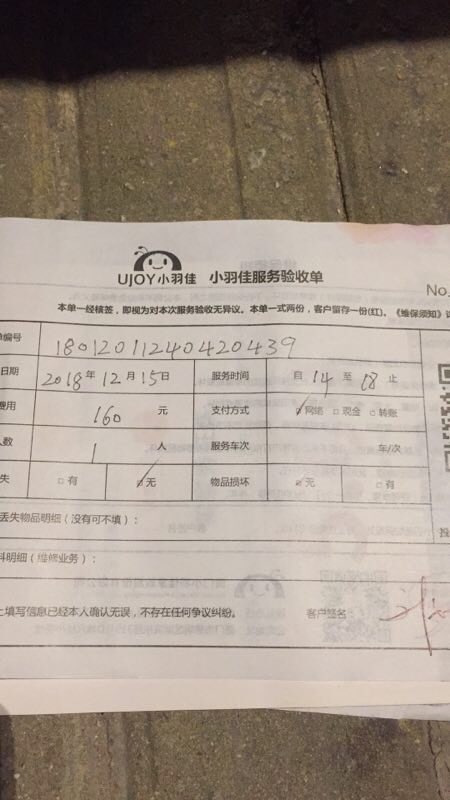 UJOY小羽佳 小羽佳服务验收单
No.
本单一经核签，即视为对本次服务验收无异议。本单一式两份，客户留存一份(红)。《维保须知》
编号 180120112404420439
日期 2018年12月15日 服务时间 自14至18止
费用 160 元 支付方式 ☑网络 □现金 □转账
人数 1 人 服务车次 车/次
失 □有 ☑无 物品损坏 ☑无 □有
丢失物品明细（没有可不填）：
料明细（维修业务）：
上填写信息已经本人确认无误，不存在任何争议纠纷。 客户签名